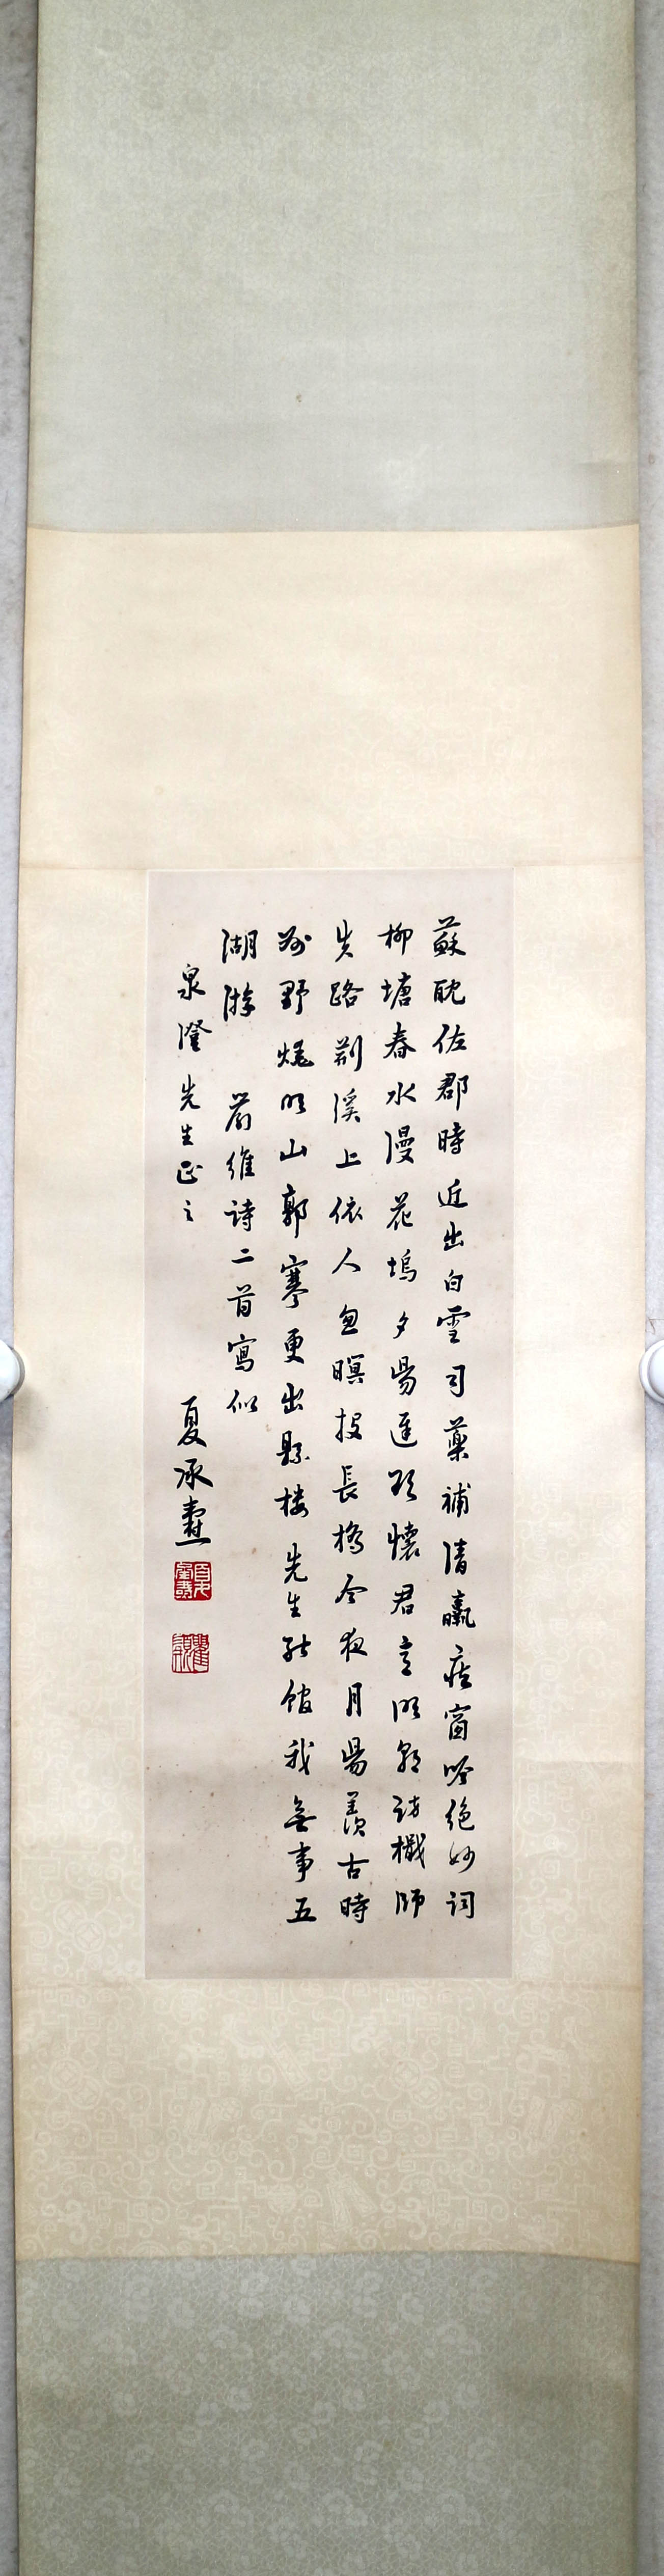 蘇耽佐郡時近出白雲司藥補清羸疾窗吟絕妙詞
柳塘春水漫花塢夕陽遲欲懷君意明朝訪檝師
失路荊溪上依人忽暝投長橋今夜月陽羨古時
州野燒明山郭寒更出縣樓先生能館我無事五
湖游 嚴維詩二首寫似
泉澄先生正之 夏承燾